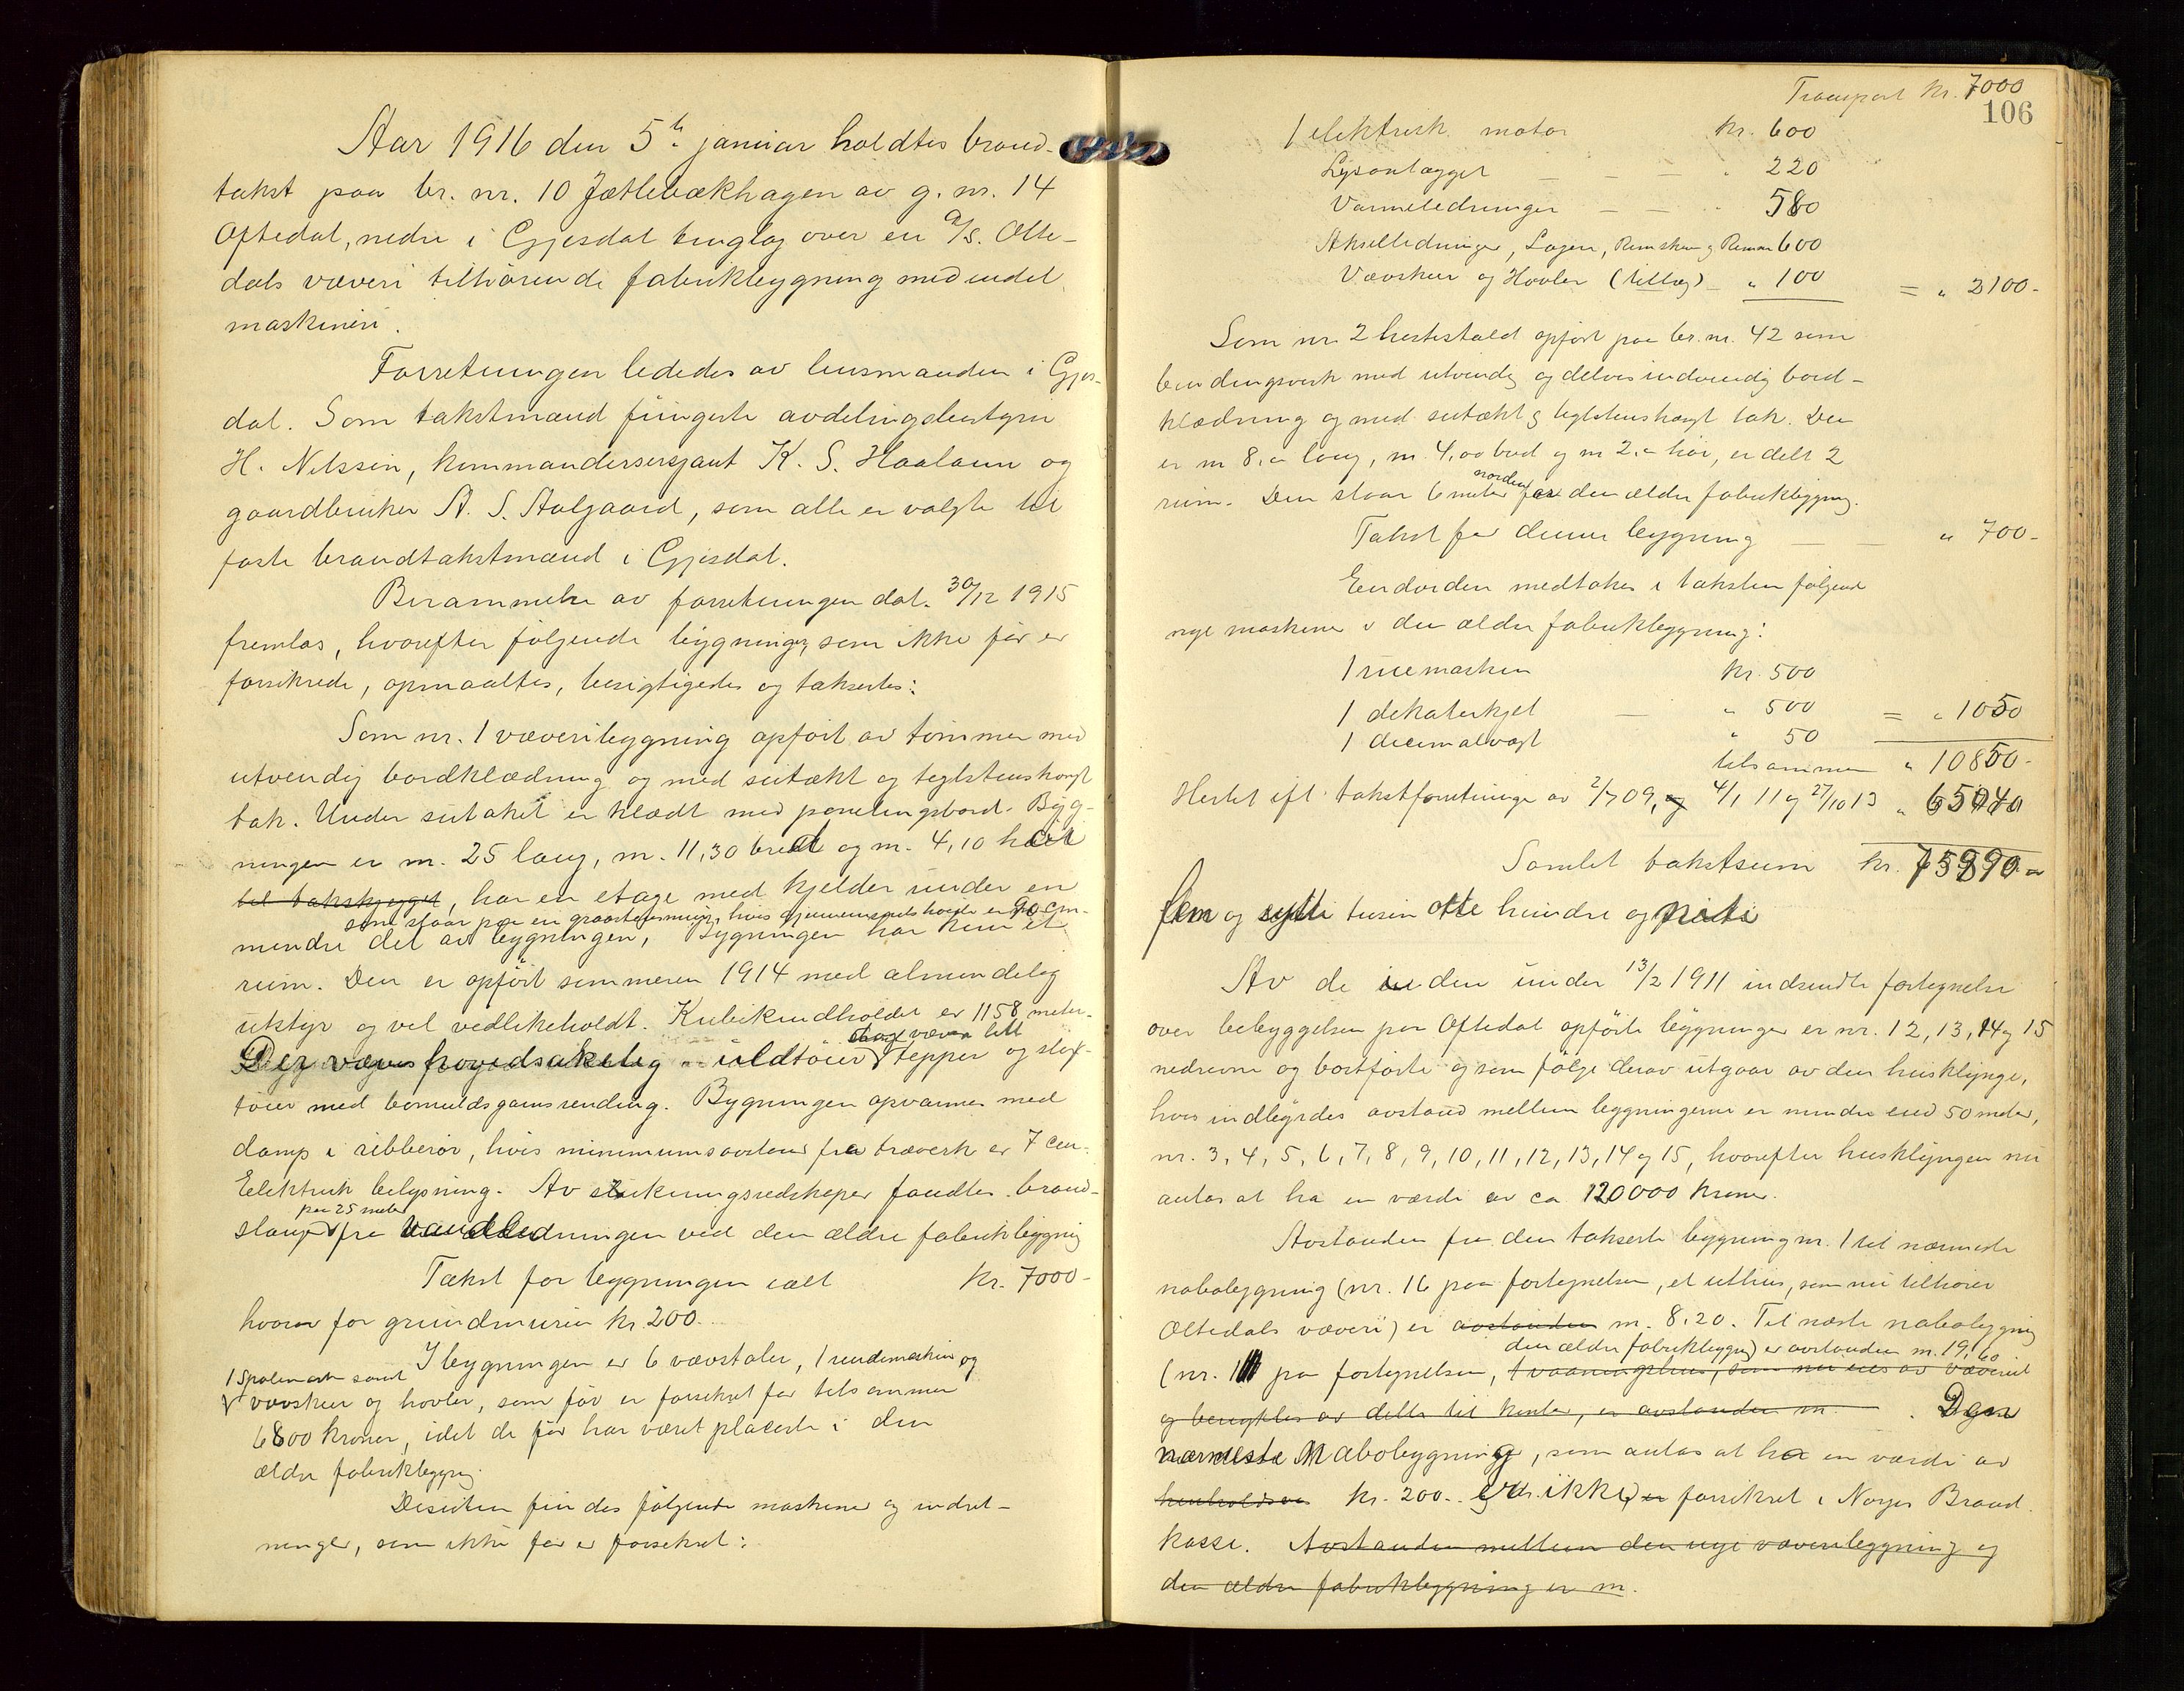 Aar 1916 den 5te januar holdtes brand-
takst paa br. nr. 10 Jætlebækhagen av g. nr. 14
Oftedal, nedre i Gjesdal tinglag over en A/S. Olte-
dals væveri tilhörende fabrikbygning med endel
maskineri.
Forretningen lededes av lensmanden i Gjes-
dal. Som takstmænd fungerte avdelingsbestyrer
H. Nilssen, kommandersersjant K. S. Haaland og
gaardbruker A. S. Aalgaard, som alle er valgte til
faste brandtakstmænd i Gjesdal.
Berammelse av forretningen dat. 30/12 1915
fremlas, hvorefter følgende bygninger, som ikke før er
forsikrede, opmaaltes, besigtigedes og takseredes:
Som nr. 1 væveribygning opført av tömmer med
utvendig bordklædning og med sutækt og teglstenshængt
tak. Under sutaket er klædt med panelingsbord. Byg-
ningen er m. 25 lang, m. 11,30 bred og m. 4,10 høi
til takskjegget, har en etage med kjelder under en
som staar paa en graastensmur, hvis gjennemsnitshøide er 90 cm.
mindre del av bygningen, Bygningen har kun et
rum. Den er opført sommeren 1914 med almindelig
utstyr og vel vedlikeholdt. Kubikindholdet er 1158 meter.
samt væves litt
Der væves hovedsakelig uldtöier, tepper og slof-
töier med bomuldsgarnsrending. Bygningen opvarmes med
damp i ribberör, hvis minimumsavstand fra træverk er 7 cm.
Elektrisk belysning. Av slukningsredskaper fandtes brand-
paa 25 meter
slange fra vandledningen ved den ældre fabrikbygning
Takst for bygningen ialt kr. 7000-
hvorav for grundmuren kr. 200.
I bygningen er 6 vævstoler, 1 rendemaskin og
1 spolemask samt
vævskeer og hovler, som før er forsikret for tilsammen
6800 kroner, idet de før har været placerte i den
ældre fabrikbygning.
Desuten findes følgende maskiner og indret-
ninger, som ikke før er forsikret:
Transport kr. 7000
106
1 elektrisk motor kr. 600
Lysanlægget - - - " 220
Varmeledninger - - " 580
Akselledninger, Lagere, Remskiver og Remmer 600
Vævskeer og Hovler (tillæg) - " 100 = " 2100-
Som nr. 2 hestestald opført paa br. nr. 42 som
bindingsverk med utvendig og delvis indvendig bord-
klædning og med sutækt og teglstenshængt tak. Den
er m 8,00 lang, m. 4,00 bred og m 2,00 høi, er delt 2
norden
rum. Den staar 6 meter for den ældre fabrikbygning.
Takst for denne bygning - - " 700-
Endvidere medtakes i taksten følgende
nye maskiner i den ældre fabrikbygning:
1 ruemaskin kr. 500
1 dekaterkjel - " 500 = " 1050
1 decimalvægt " 50
tilsammen " 10850-
Hertil ifl. takstforretninger av 2/7 09, og 4/1 11 og 27/10 13 " 65040
Samlet takstsum kr. 75890-
fem og sytti tusen otte hundre og niti
Av de i den under 13/2 1911 indsendte fortegnelse
over bebyggelsen paa Oftedal opførte bygninger er nr. 12, 13, 14 og 15
nedrevne og bortførte og som følge derav utgaar av den husklynge,
hvis indbyrdes avstand mellem bygningerne er mindre end 50 meter,
nr. 3, 4, 5, 6, 7, 8, 9, 10, 11, 12, 13, 14 og 15, hvorefter husklyngen nu
antas at ha en værdi av ca 120000 kroner.
Avstanden fra den takserte bygning nr. 1 til nærmeste
nabobygning (nr. 16 paa fortegnelsen, et uthus, som nu tilhører
Oltedals væveri) er avstanden m. 8,20. Til næste nabobygning
den ældre fabrikbygning) er avstanden m. 19,60
(nr. 1 paa fortegnelsen, 1 vaaningshus, som nu eies av væveriet
og benyttes av dette til kontor, er avstanden m. Den
nærmeste nabobygning, som antas at ha en værdi av
henholdsvis kr. 200. er ikke er forsikret i Norges Brand-
kasse. Avstanden mellem den nye væveribygning og
den ældre fabrikbygning er m.